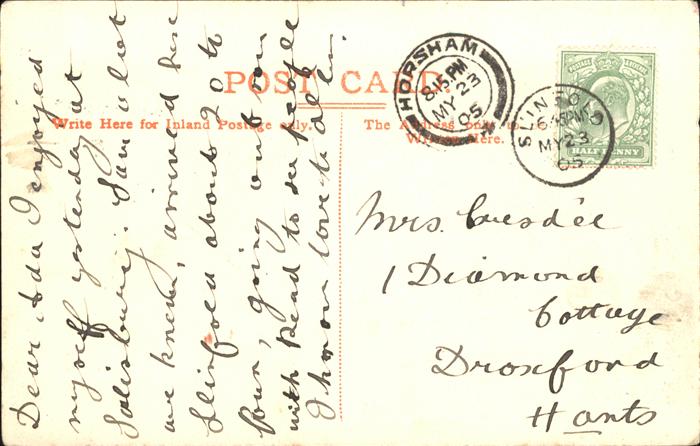 POST CARD
Write Here for Inland Postage only.
The Address only to be
Written Here.
HORSHAM
8.15 PM
MY 23
05
SLINFOLD
MY 23
05
POSTAGE & REVENUE
HALF PENNY
Dear Ada I enjoyed
myself yesterday at
Salisbury. Saw a lot
we knew, arrived here
Slinfold about 20 to
four, going out now
with Read to see people
love to all
Mrs.
1 Diamond
Cottage
Droxford
Hants